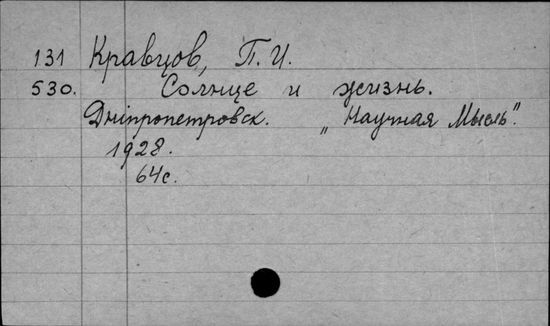 131 Кравцов, П. И.
530. Солнце и жизнь.
Дніпропетровск. „Научная Мысль".
1928.
64с.